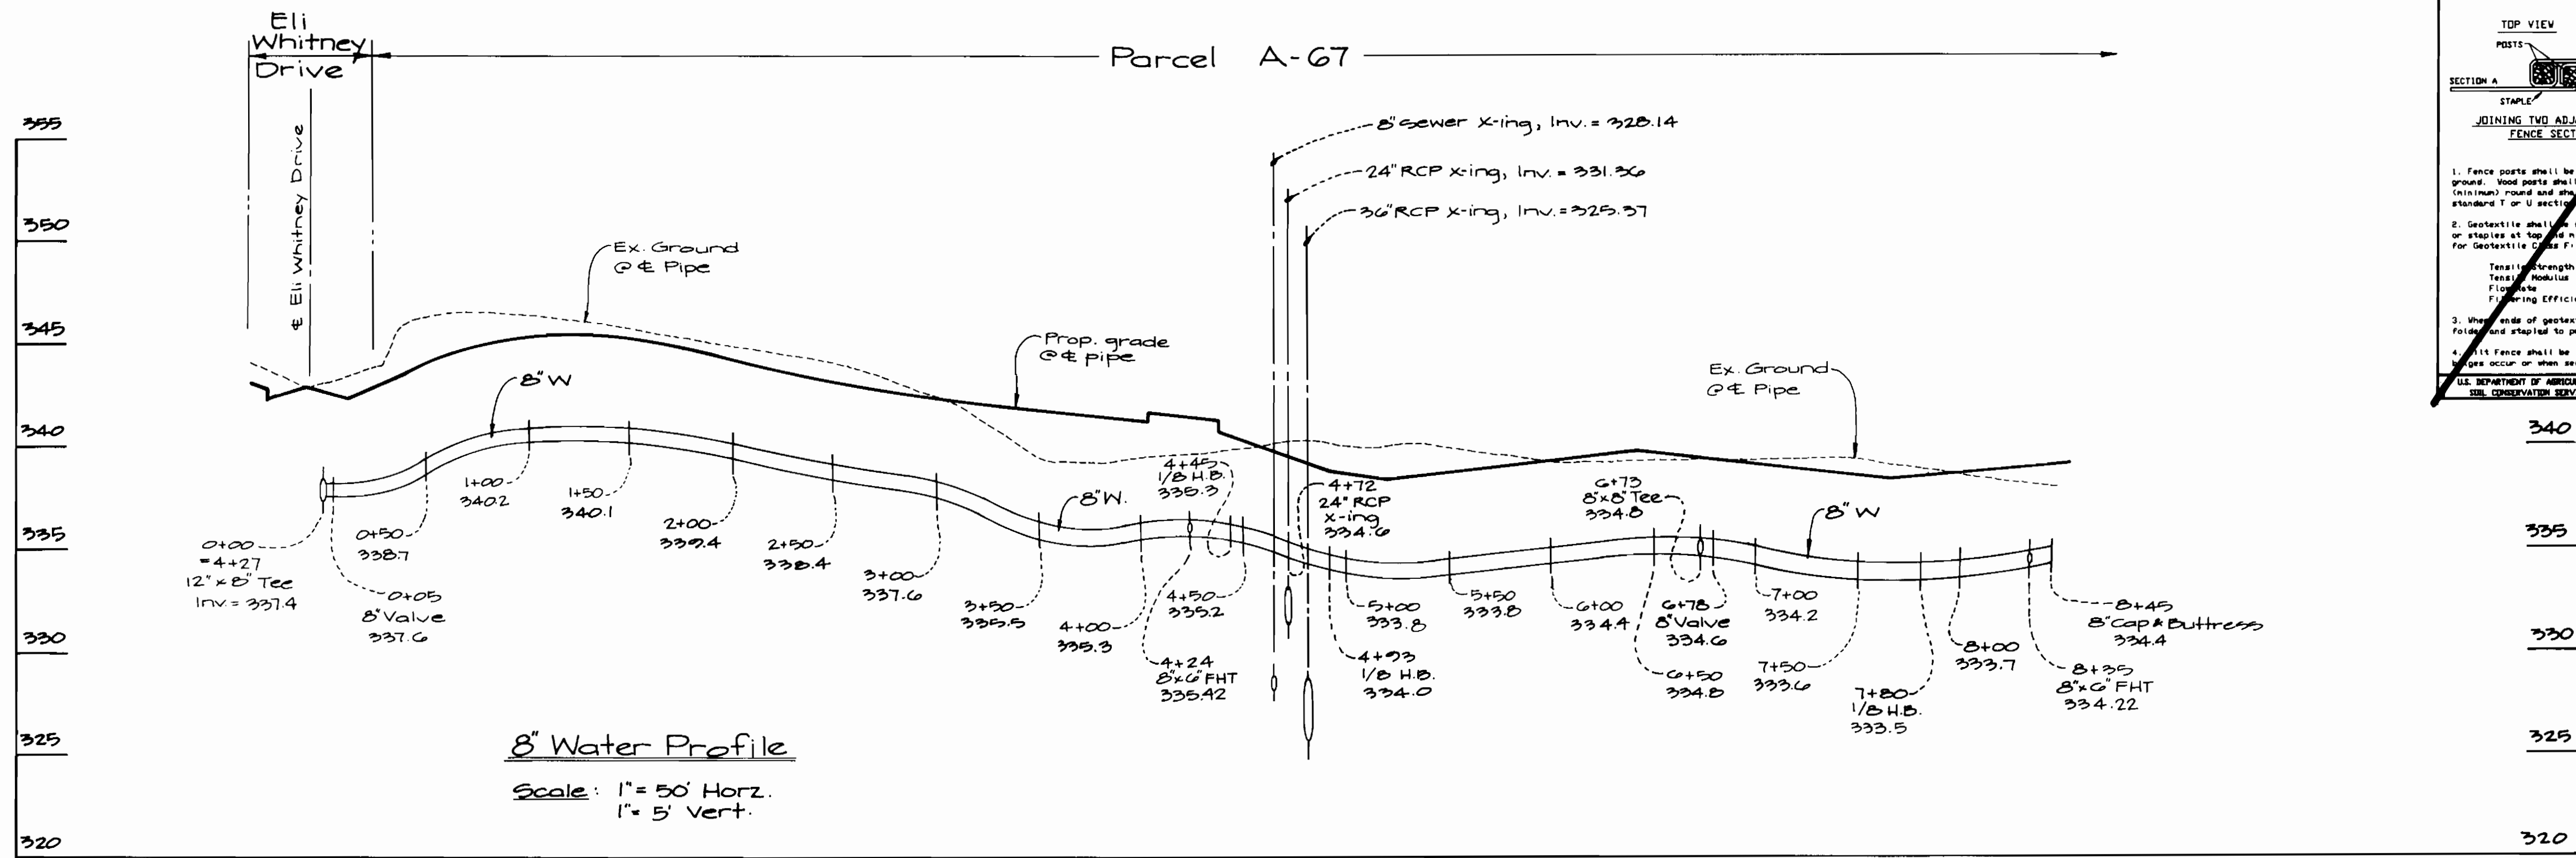 Eli
Whitney
Drive
Parcel A-67
℄ Eli Whitney Drive
355
350
345
340
335
330
325
320
8" Sewer X-ing, Inv. = 328.14
24" RCP X-ing, Inv. = 331.36
36" RCP X-ing, Inv. = 325.37
Ex. Ground
@ ℄ Pipe
Prop. grade
@ ℄ pipe
Ex. Ground
@ ℄ Pipe
8" W
8" W.
8" W
0+00
=4+27
12" x 8" Tee
Inv. = 337.4
0+05
8" Valve
337.6
0+50
338.7
1+00
340.2
1+50
340.1
2+00
339.4
2+50
338.4
3+00
337.6
3+50
335.5
4+00
335.3
4+24
8"x6" FHT
335.42
4+45
1/8 H.B.
335.3
4+50
335.2
4+72
24" RCP
X-ing
334.6
4+93
1/8 H.B.
334.0
5+00
333.8
5+50
333.8
6+00
334.4
6+50
334.8
6+73
8"x8" Tee
334.8
6+78
8" Valve
334.6
7+00
334.2
7+50
333.6
7+80
1/8 H.B.
333.5
8+00
333.7
8+35
8"x6" FHT
334.22
8+45
8" Cap & Buttress
334.4
8" Water Profile
Scale: 1" = 50' Horz.
1" = 5' Vert.
TOP VIEW
POSTS
SECTION A
STAPLE
JOINING TWO ADJ
FENCE SECT
1. Fence posts shall be
ground. Wood posts shall
(minimum) round and sha
standard T or U sectio
2. Geotextile shall
or staples at top
for Geotextile
Strength
Modulus
3. ends of geotex
and stapled to p
Fence shall be
occur or when se
U.S. DEPARTMENT OF AGRICU
SOIL CONSERVATION SERV
340
335
330
325
320